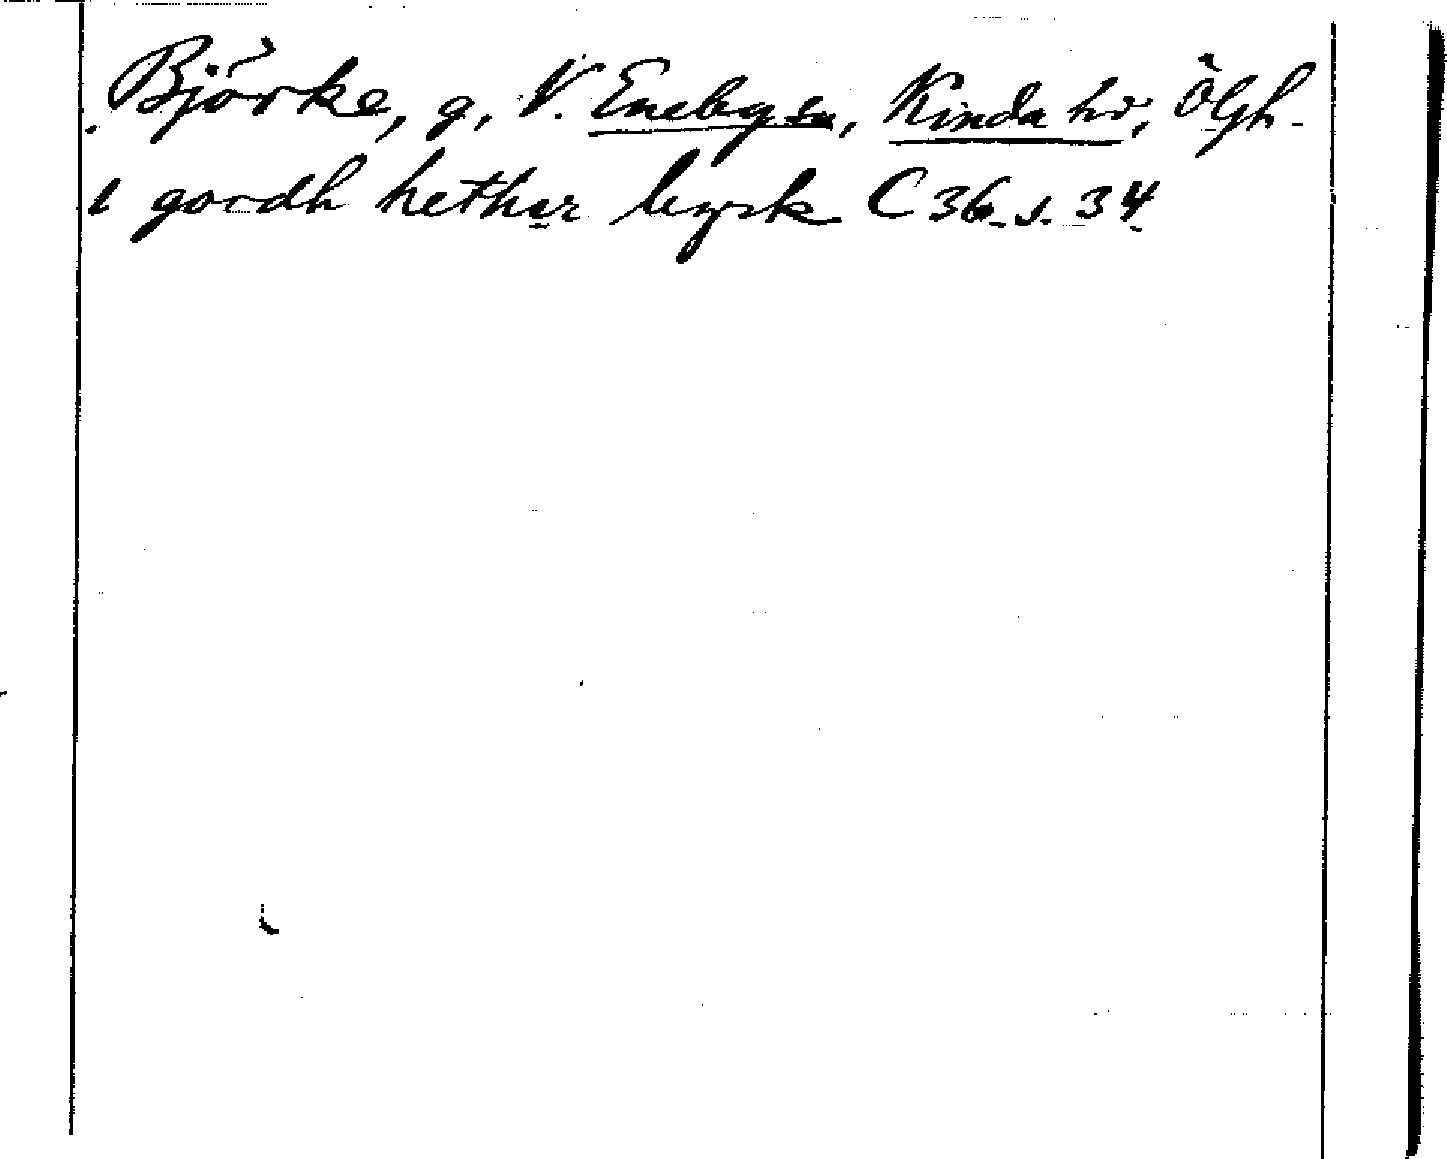 Björke, g, V. Eneby sn, Kinda hd, Ögh.
1 gordh hethær byrk C 36 s. 34